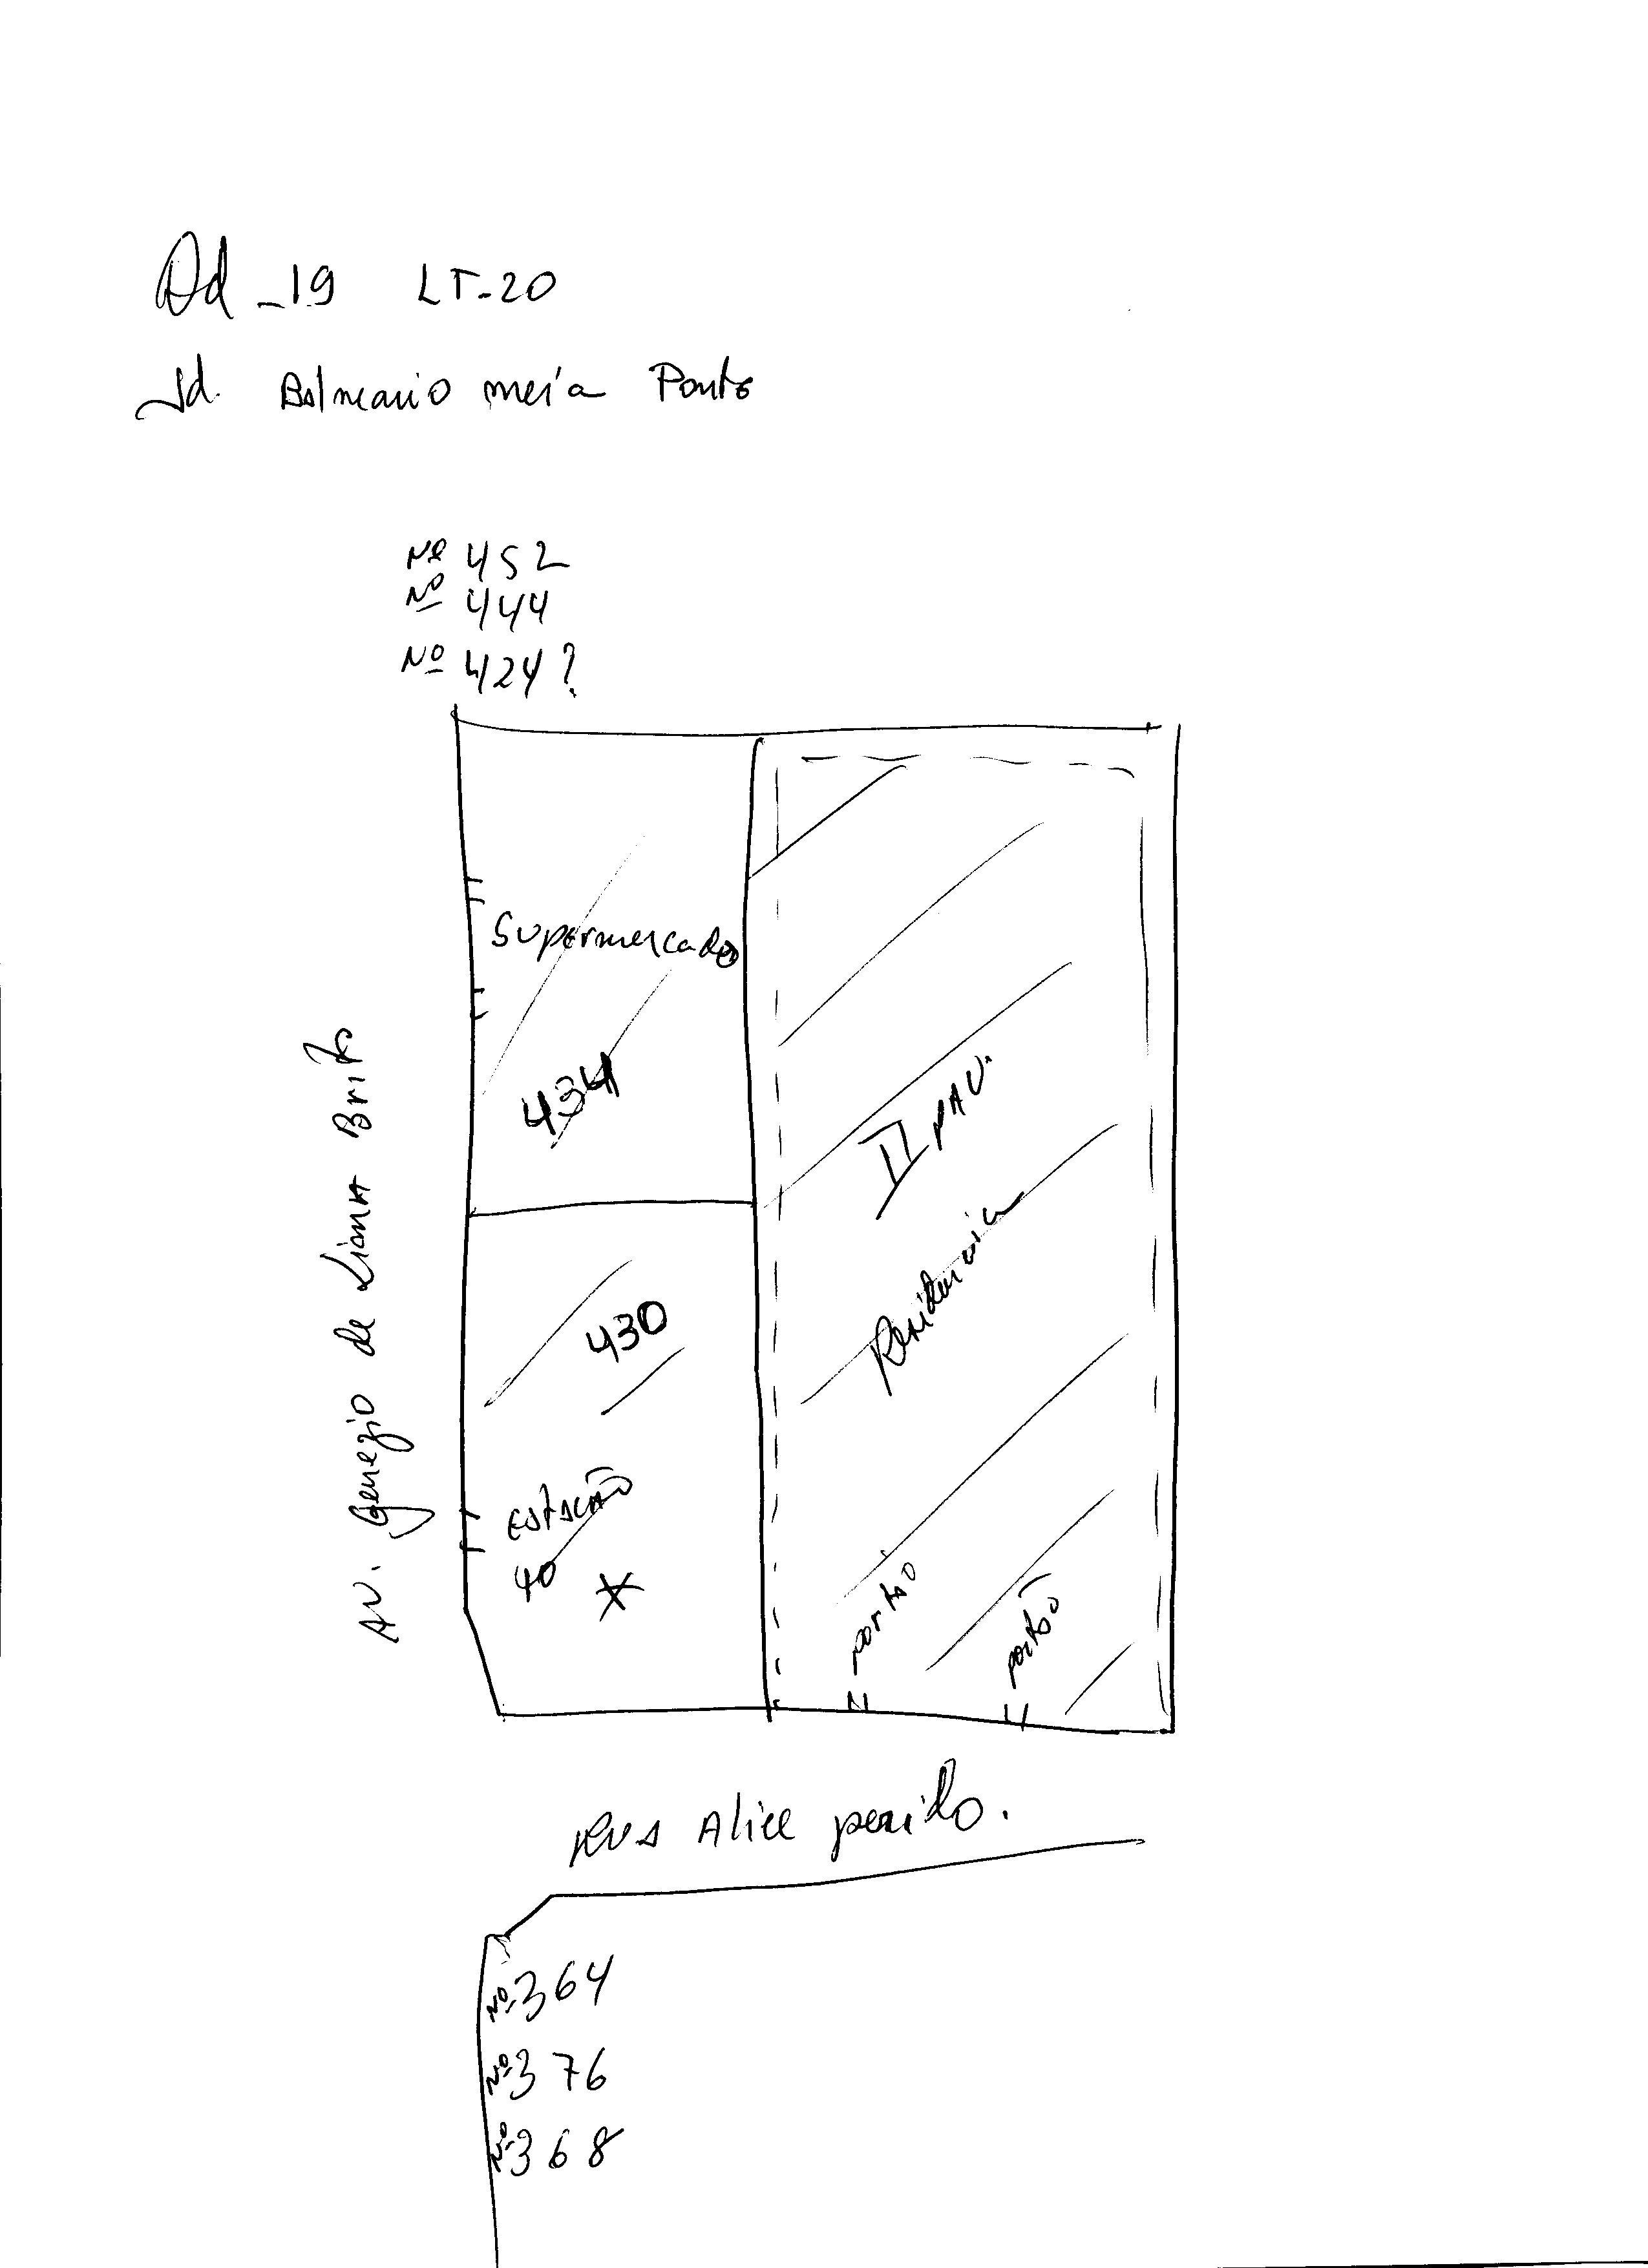 Qd_19 LT-20
Jd. Balneario meia Ponte
Nº 452
Nº 444
Nº 424?
Supermercado
434
II PAV.
Residencia
430
ESTAÇÃO
40
*
portão
portão
AV. Genezio de Lima Brito
RUA Alice
Nº 364
Nº 376
Nº 368